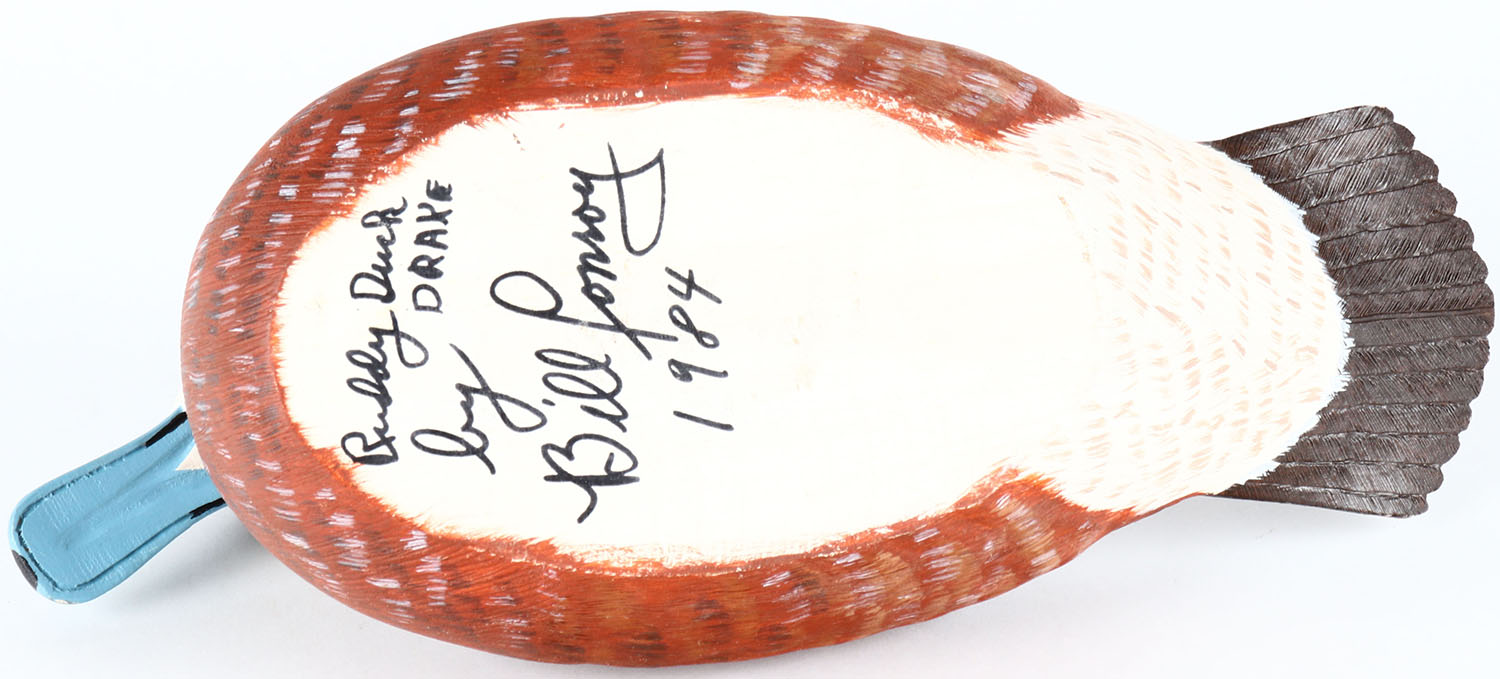 Ruddy Duck
DRAKE
by
Bill Conroy
1984